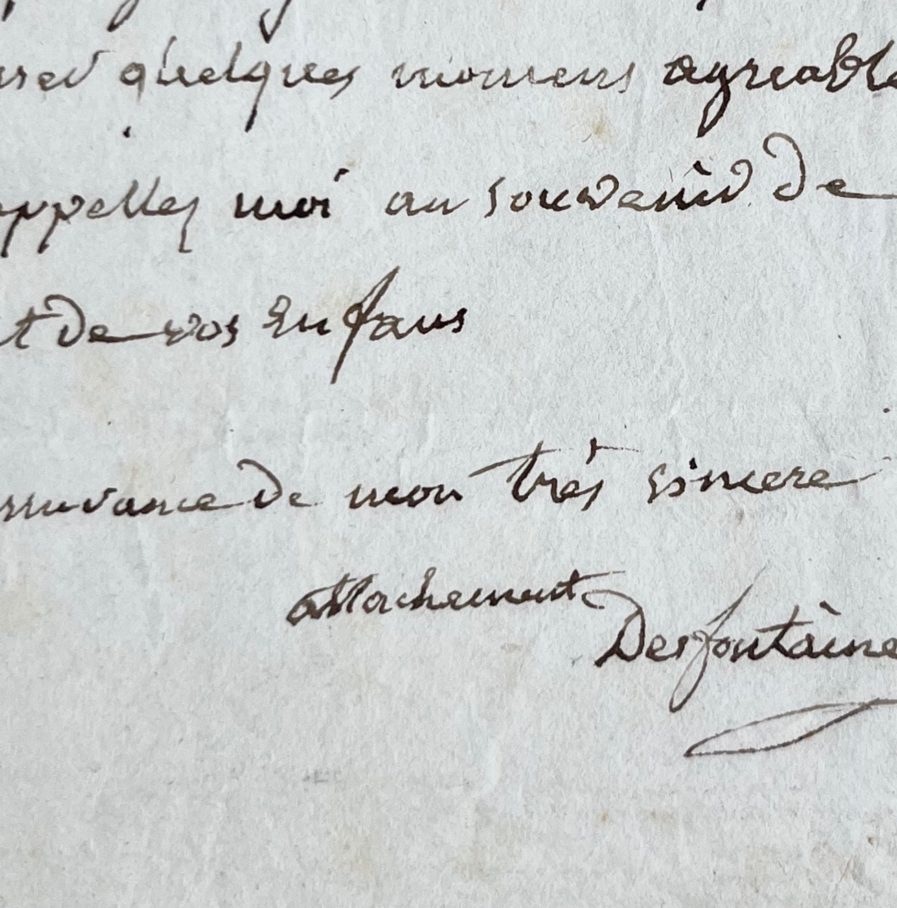 quelques momens agreable
appelles moi au souvenir de
t de vos enfans
ssurance de mon très sincere
attachement
Desfontaine